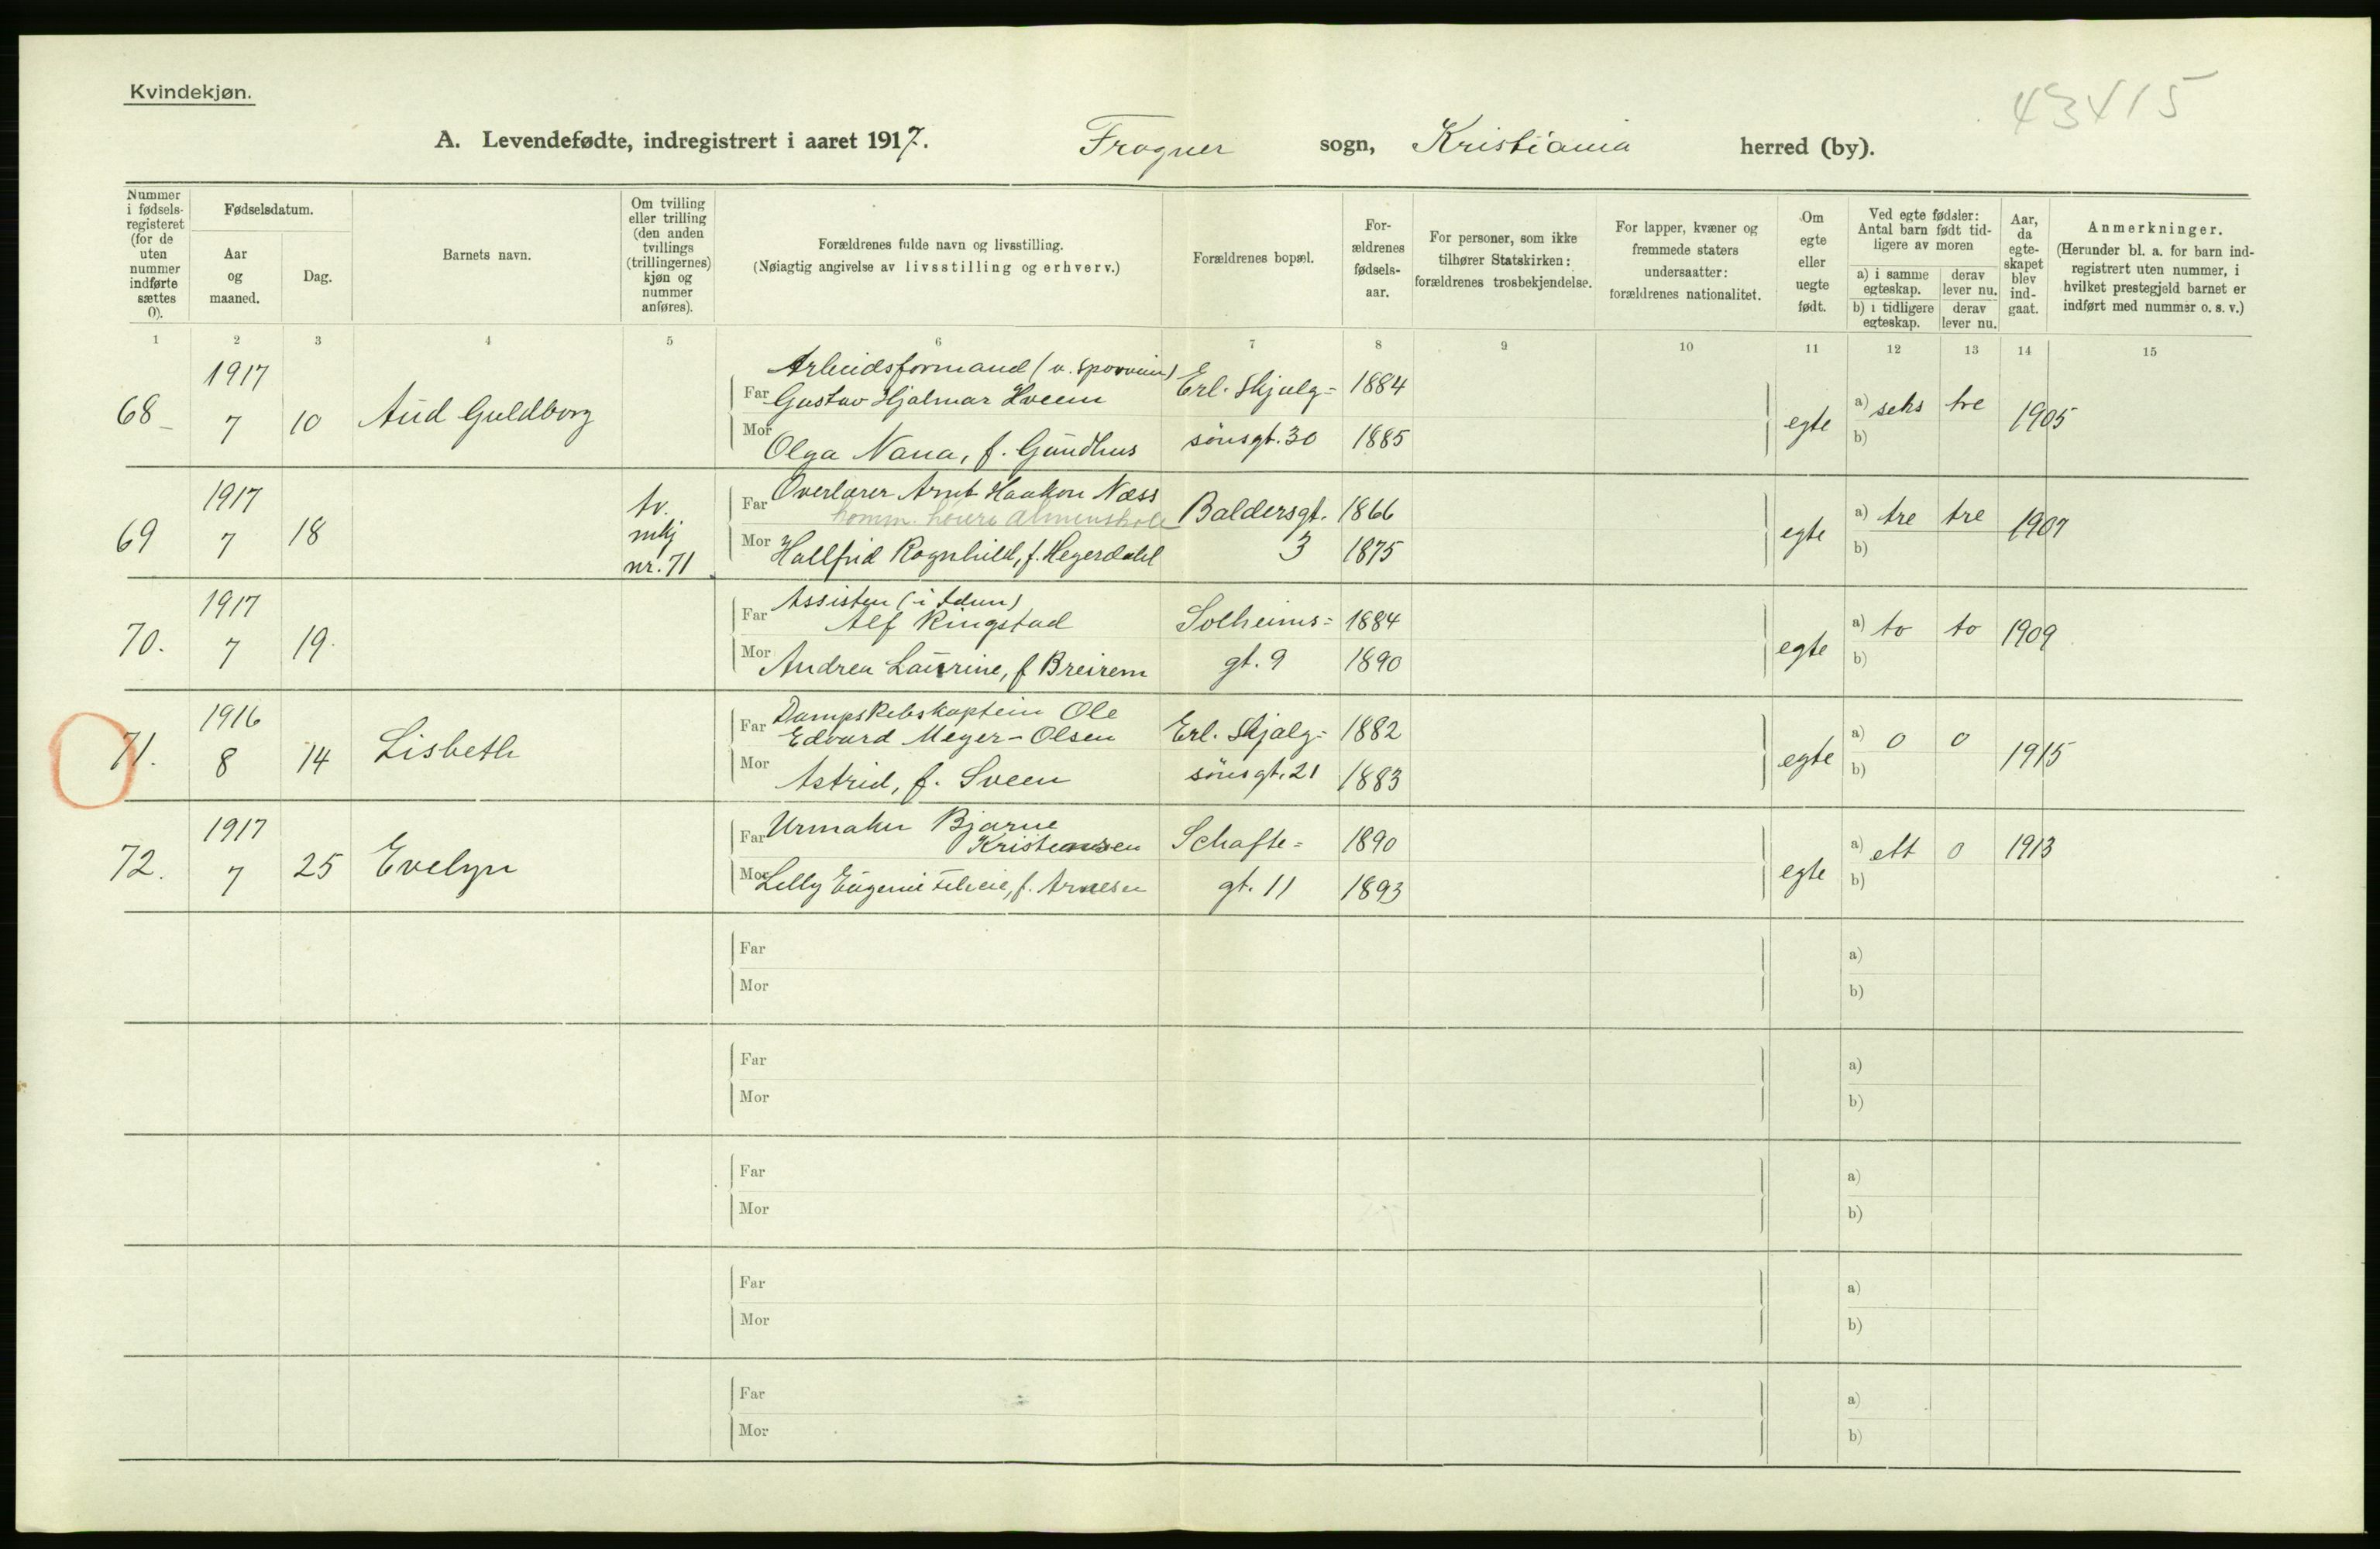 Kvindekjøn.
43415
A. Levendefødte, indregistrert i aaret 1917. Frogner sogn, Kristiania herred (by).
Nummer i fødsels-registeret (for de uten nummer indførte sættes 0).
Fødselsdatum.
Aar og maaned.
Dag.
Barnets navn.
Om tvilling eller trilling (den anden tvillings (trillingernes) kjøn og nummer anføres).
Forældrenes fulde navn og livsstilling.
(Nøiagtig angivelse av livsstilling og erhverv.)
Forældrenes bopæl.
For-ældrenes fødsels-aar.
For personer, som ikke tilhører Statskirken: forældrenes trosbekjendelse.
For lapper, kvæner og fremmede staters undersaatter: forældrenes nationalitet.
Om egte eller uegte født.
Ved egte fødsler: Antal barn født tid-ligere av moren
a) i samme egteskap. derav lever nu.
b) i tidligere egteskap. derav lever nu.
Aar, da egte-skapet blev ind-gaat.
Anmerkninger.
(Herunder bl. a. for barn ind-registrert uten nummer, i hvilket prestegjeld barnet er indført med nummer o. s. v.)
1 2 3 4 5 6 7 8 9 10 11 12 13 14 15
1917 Arbeidsformand (v. sporveien)
68 7 10 Aud Guldborg Far Gustav Hjalmar Hveem Erl. Skjalg= 1884 egte a) seks tre 1905
Mor Olga Nana, f. Gundhus sönsgt. 30 1885 b)
1917 tv. Far Overlærer Arnt Haakon Næss
komm. höiere almenskole
69 7 18 mkj nr. 71 Baldersgt. 3 1866 egte a) tre tre 1907
Mor Hallfrid Ragnhild, f. Hegerdahl 1875 b)
1917 Assisten (i Idun)
70. 7 19. Far Alf Ringstad Solheims= 1884 egte a) to to 1909
Mor Andrea Laurine, f Breirem gt. 9 1890 b)
1916 Far Dampskibskaptein Ole
71. 8 14 Lisbeth Edvard Meyer-Olsen Erl. Skjalg= 1882 egte a) 0 0 1915
Mor Astrid, f. Sveen sönsgt. 21 1883 b)
1917 Far Urmaker Bjarne
72. 7 25 Evelyn Kristiansen Schafte= 1890 egte a) ett 0 1913
Mor Lilly Eugenie Felicie, f. Arnesen gt. 11 1893 b)
Far a)
Mor b)
Far a)
Mor b)
Far a)
Mor b)
Far a)
Mor b)
Far a)
Mor b)